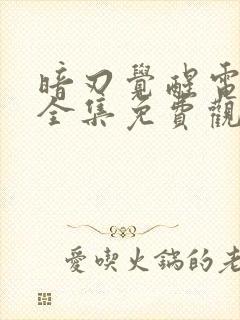 暗刃覺醒電
全集免費觀
愛喫火鍋的老